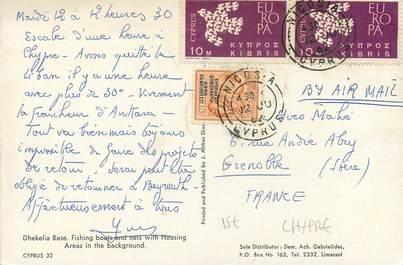 Mardi 12 à 12 heures 30
Escale d'une heure à
Chypre - Avons quitté
Liban il y a une heure
avec plus de 30° - Vivement
la fraîcheur d'Ankara -
Tout va bien mais toujours
impossible de faire des projets
de retour. Serai peut être
obligé de retourner à Beyrouth
Affectueusement à tous
Yves
Dhekelia Base. Fishing boats and nets with Housing
Areas in the background.
CYPRUS 32
Printed and Published by J. Arthur Dixon
CYPRUS
EUROPA
10 M
ΚΥΠΡΟΣ
KIBRIS
CYPRUS
EUROPA
10 M
ΚΥΠΡΟΣ
KIBRIS
NICOSIA
CYPRUS
NICOSIA
CYPRUS
BY AIR MAIL
Yves Mahé
6 rue André Abry
Grenoble
(Isère)
FRANCE
CHYPRE
Sole Distributor: Dem. Ach. Gabrielides,
P.O. Box No 163, Tel. 2332, Limassol